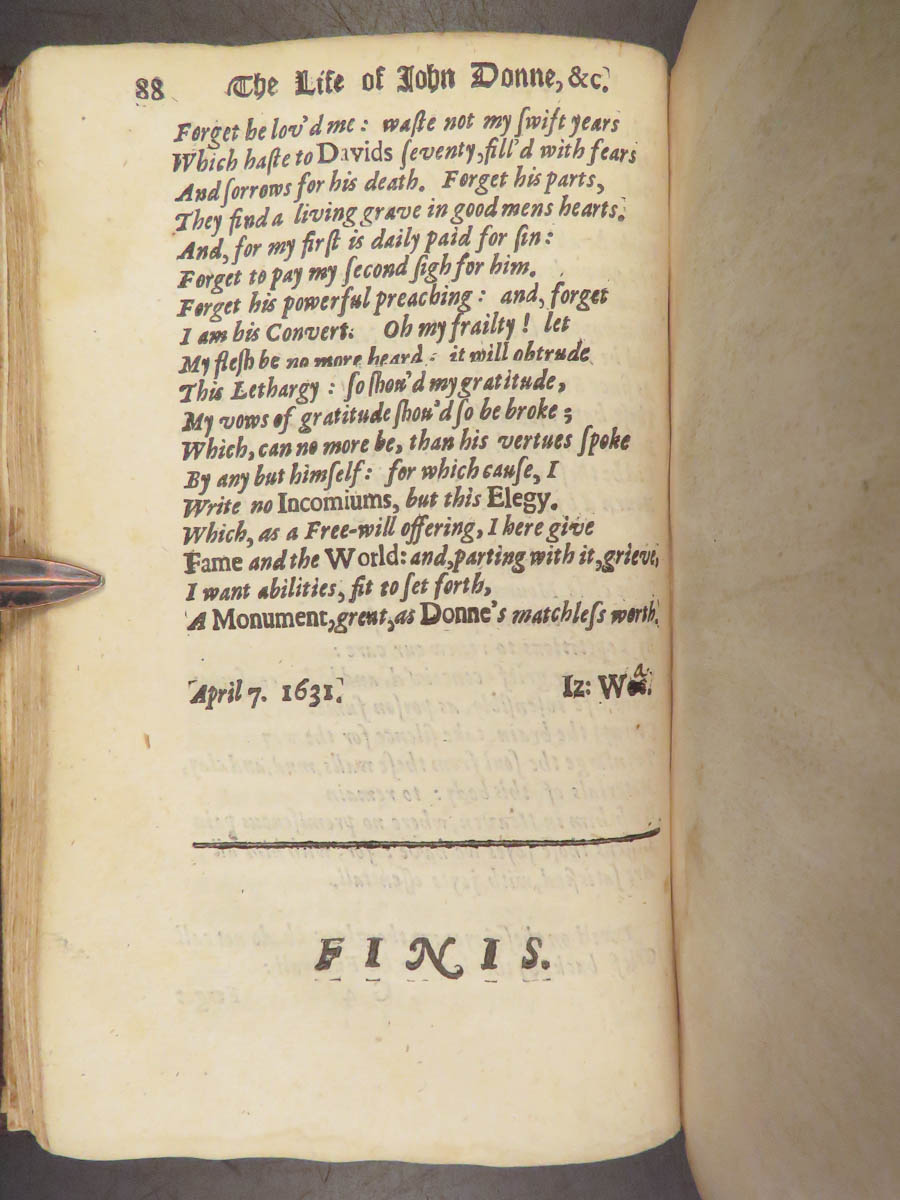 88 The Life of John Donne, &c.
Forget he lov'd me: waſte not my ſwift years
Which haſte to Davids ſeventy, fill'd with fears
And ſorrows for his death. Forget his parts,
They find a living grave in good mens hearts.
And, for my firſt is daily paid for ſin:
Forget to pay my ſecond ſigh for him.
Forget his powerful preaching: and, forget
I am his Convert. Oh my frailty! let
My fleſh be no more heard: it will obtrude
This Lethargy: ſo ſhou'd my gratitude,
My vows of gratitude ſhou'd ſo be broke;
Which, can no more be, than his vertues ſpoke
By any but himſelf: for which cauſe, I
Write no Incomiums, but this Elegy.
Which, as a Free-will offering, I here give
Fame and the World: and, parting with it, grieve,
I want abilities, fit to ſet forth,
A Monument, great, as Donne's matchleſs worth.
April 7. 1631. Iz: Wa.
FINIS.